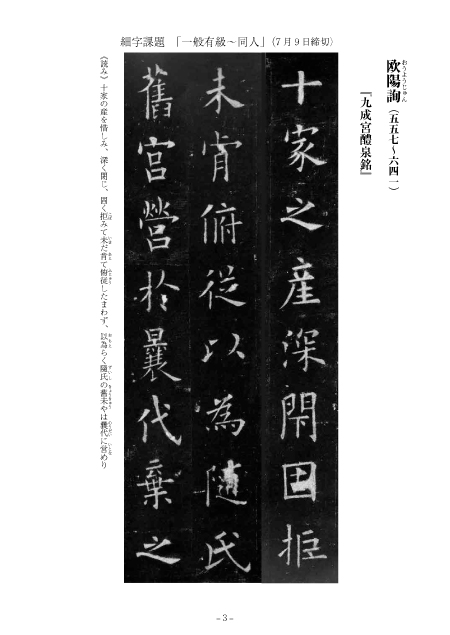 細字課題 「一般有級～同人」(7月9日締切)
欧陽詢(五五七～六四一)
おうようじゅん
『九成宮醴泉銘』
十家之産深閇固拒
未肯俯従以為随氏
舊宮營於曩代棄之
《読み》十家の産を惜しみ、深く閉じ、固く拒みて未だ肯て俯従したまわず、以為らく隨氏の舊宮は曩代に営めり
-3-